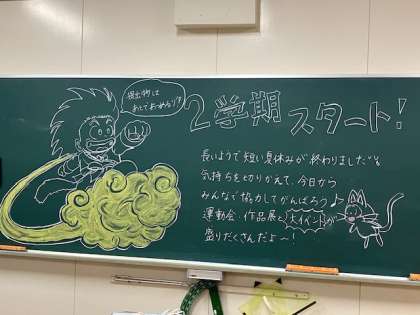 提出物は
あとであつめるよ!?
2学期スタート!
長いようで短い夏休みが終わりました。
気持ちを切りかえて、今日から
みんなで協力してがんばろう♪
運動会、作品展と大イベントが
盛りだくさんだよ〜!